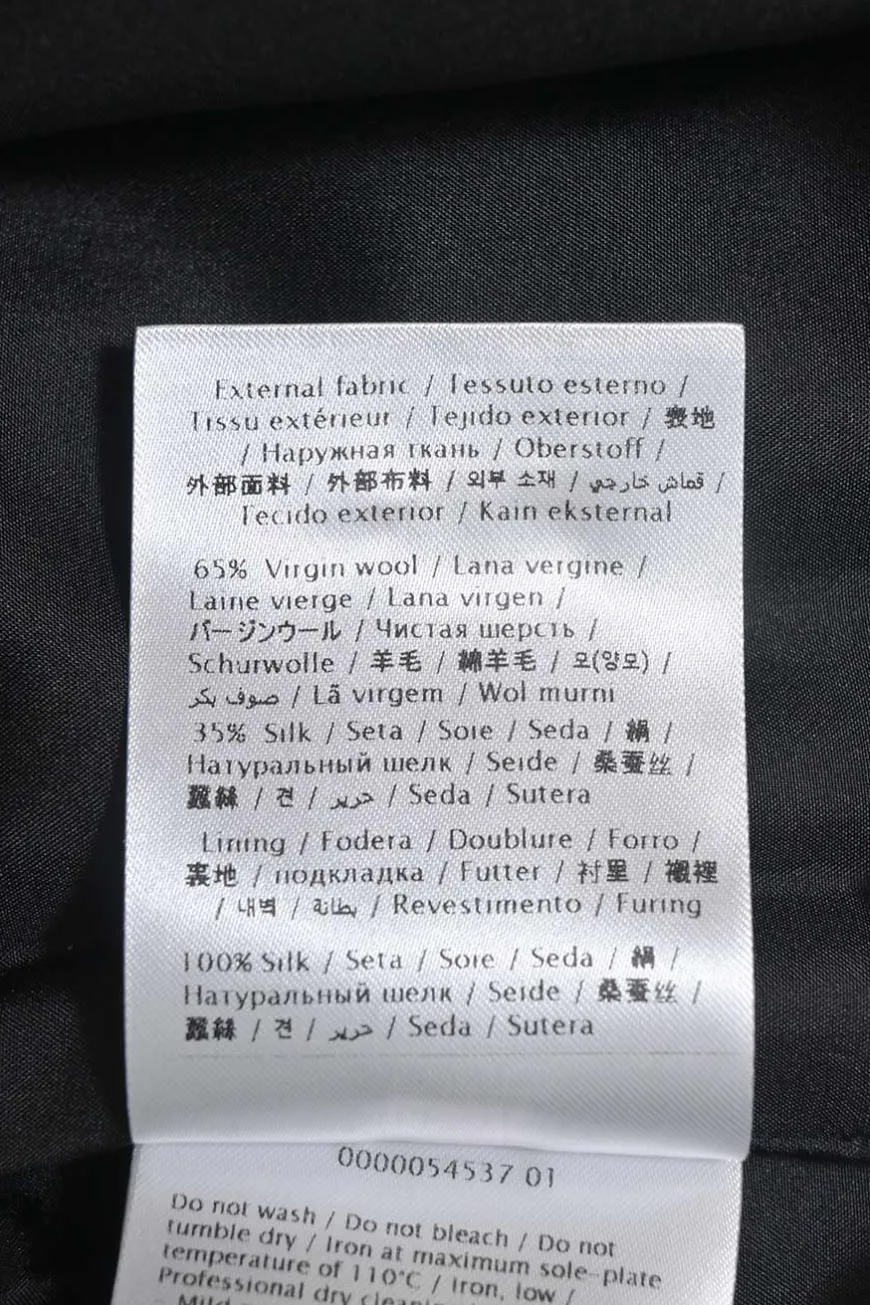 External fabric / Tessuto esterno /
Tissu extérieur / Tejido exterior / 表地
/ Наружная ткань / Oberstoff /
外部面料 / 外部布料 / 외부 소재 / قماش خارجي /
Tecido exterior / Kain eksternal
65% Virgin wool / Lana vergine /
Laine vierge / Lana virgen /
バージンウール / Чистая шерсть /
Schurwolle / 羊毛 / 綿羊毛 / 모(양모) /
صوف بكر / Lã virgem / Wol murni
35% Silk / Seta / Soie / Seda / 絹 /
Натуральный шелк / Seide / 桑蚕丝 /
蠶絲 / 견 / حرير / Seda / Sutera
Lining / Fodera / Doublure / Forro /
裏地 / подкладка / Futter / 衬里 / 襯裡
/ 내벽 / بطانة / Revestimento / Furing
100% Silk / Seta / Soie / Seda / 絹 /
Натуральный шелк / Seide / 桑蚕丝 /
蠶絲 / 견 / حرير / Seda / Sutera
0000054537 01
Do not wash / Do not bleach / Do not
tumble dry / Iron at maximum sole-plate
temperature of 110°C / Iron, low /
Professional dry
- Mild